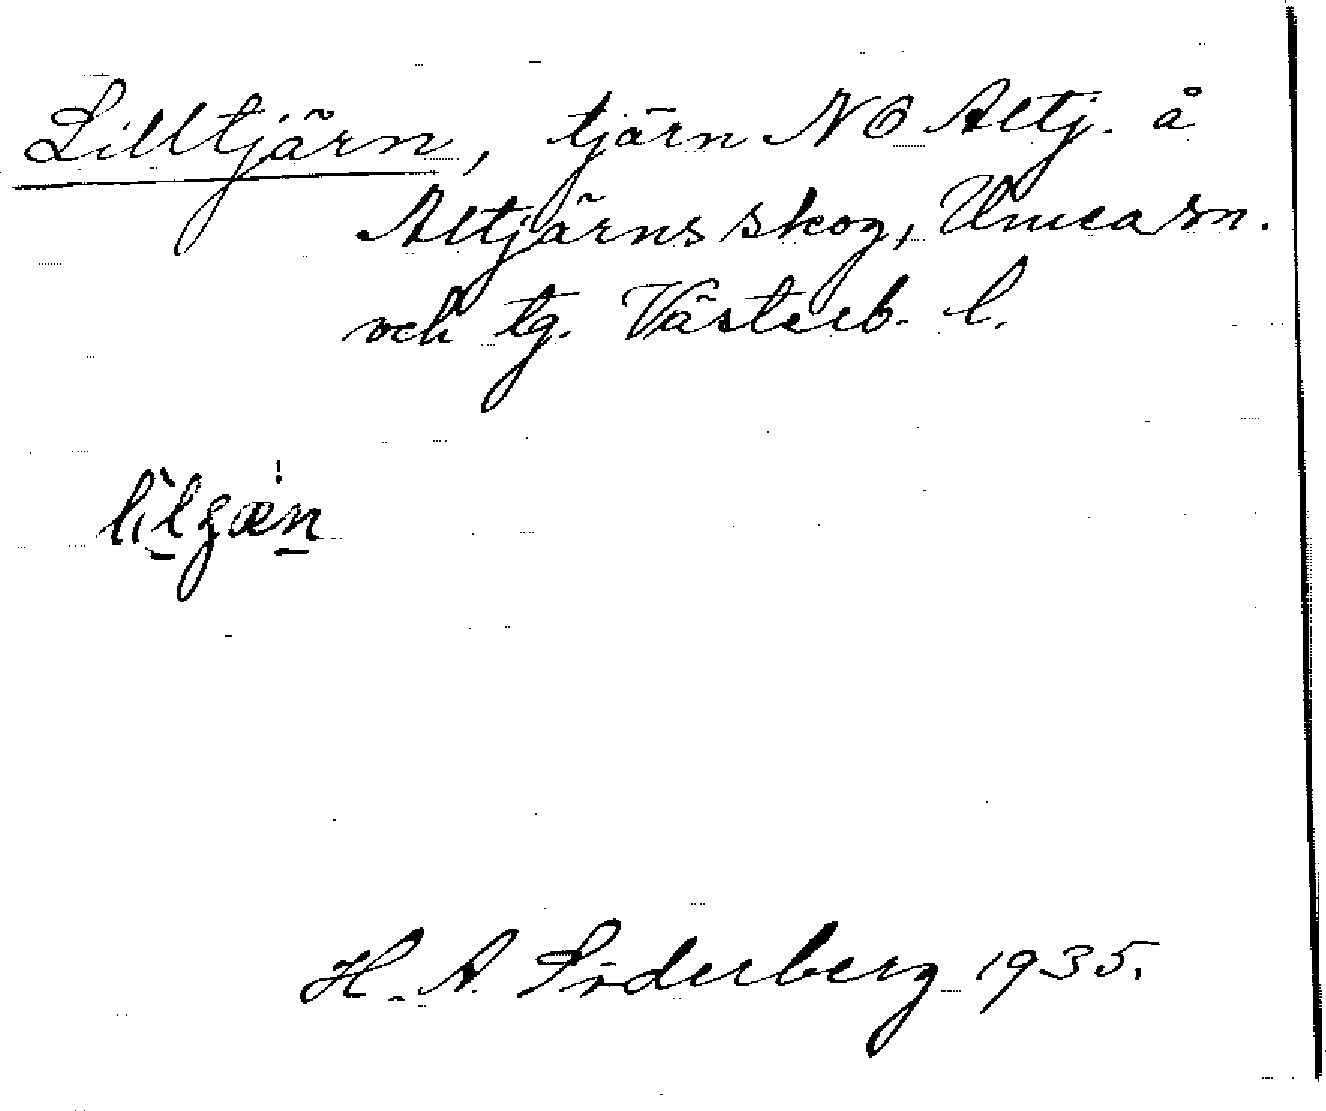 Lilltjärn, tjärn NO Altj. å
Altjärns skog, Umeå sn.
och tg. Västerb. l.
H. A. Söderberg 1935.